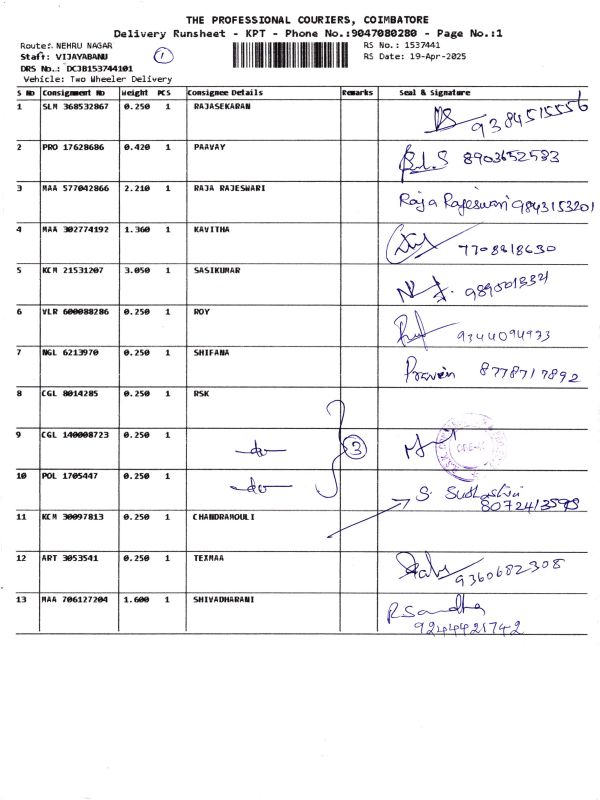 THE PROFESSIONAL COURIERS, COIMBATORE
Delivery Runsheet - KPT - Phone No.:9047080280 - Page No.:1
Route: NEHRU NAGAR 1 RS No.: 1537441
Staff: VIJAYABANU RS Date: 19-Apr-2025
DRS No.: DCJB153744101
Vehicle: Two Wheeler Delivery
S No Consignment No Weight PCS Consignee Details Remarks Seal & signature
1 SLM 368532867 0.250 1 RAJASEKARAN 9384515556
2 PRO 17628686 0.420 1 PAAVAY 8903652583
3 MAA 577042866 2.210 1 RAJA RAJESWARI Raja Rajeswari 9843153201
4 MAA 302774192 1.360 1 KAVITHA 7708818630
5 KCM 21531207 3.050 1 SASIKUMAR
6 VLR 600088286 0.250 1 ROY 9344094973
7 NGL 6213970 0.250 1 SHIFANA Praveen 8778717892
8 CGL 8014285 0.250 1 RSK
9 CGL 140008723 0.250 1 -do- 3
10 POL 1705447 0.250 1 -do- S.
8072413598
11 KCM 30097813 0.250 1 CHANDRAMOULI
12 ART 3053541 0.250 1 TEXMAA 9360682308
13 MAA 706127204 1.600 1 SHIVADHARANI R Sandhya
9244421742